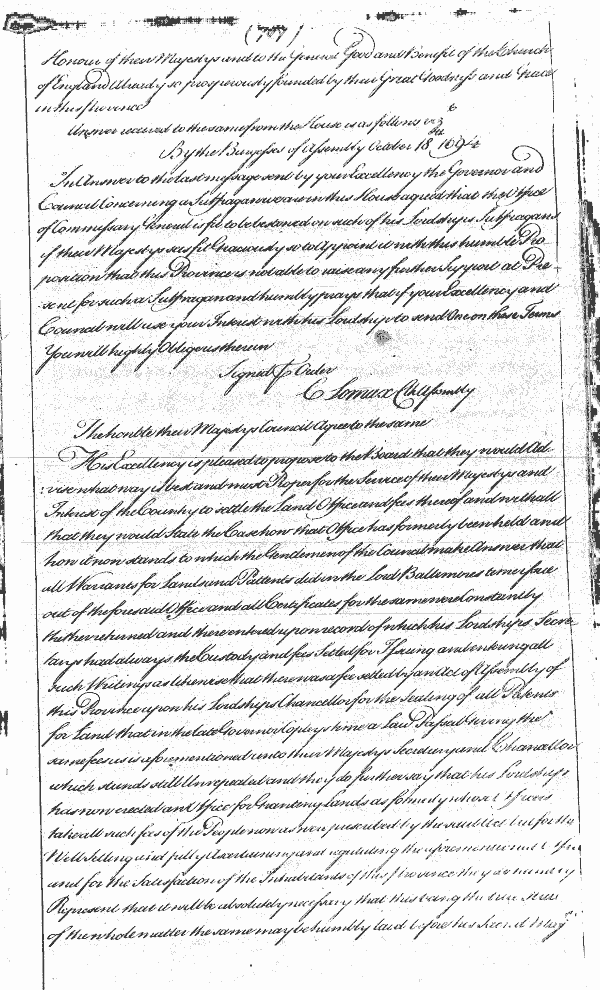 (77)
Honour of their Majestys and to the General Good and Benefit of the Church
of England Already so prosperously founded by their Great Goodness and Grace
in this Province
Answer received to the same from the House is as follows viz
By the Burgesses of Assembly October 18th 1694
In Answer to the last message sent by your Excellency the Governor and
Council Concerning a Suffragan wee in this House agreed that the Office
of Commissary General is fit to be bestowed on such of his Lordships Suffragans
if their Majestys see fit Graciously so to Appoint it with this humble Pro-
position that this Province is not able to raise any further Support at Pre-
sent for such a Suffragan and humbly prays that if your Excellency and
Council will use your Interest with his Lordship to send One on these Terms
You will highly Oblige us therein
Signed P Order
C Lomax Cl Assembly
The honble their Majestys Council Agree to the same
His Excellency is pleased to propose to the Board that they would Ad-
vise what way is best and most Proper for the Service of their Majestys and
Interest of the Country to settle the Land Office and fees thereof and withall
that they would State the Case how that Office has formerly been held and
how it now stands to which the Gentlemen of the Council make Answer that
all Warrants for Lands and Pattents did in the Lord Baltemores time issue
out of the foresaid Office and all Certificates for the same were Constantly
thither returned and there entered upon record of which his Lordships Secre-
tarys had always the Custody and fees Setled for Issuing and entring all
such Writings as likewise that there was a fee setled by an Act of Assembly of
this Province upon his Lordships Chancellor for the Sealing of all Patents
for Land that in the late Governor Copleys time a Law Passed giveing the
same fees as is aforementioned unto their Majestys Secretary and Chancellor
which stands still Unrepealed and they do further say that his Lordship
has now erected an Office for Granting Lands as formerly whose Officers
take all such fees of the People now as were prescribed by the said Act but for the
Well Setling and full ascertaining and regulating the aforementioned
and for the Satisfaction of the Inhabitants of this Province they do humbly
Represent that it will be absolutely necessary that this being the true state
of the whole matter the same may be humbly laid before his Sacred Majty